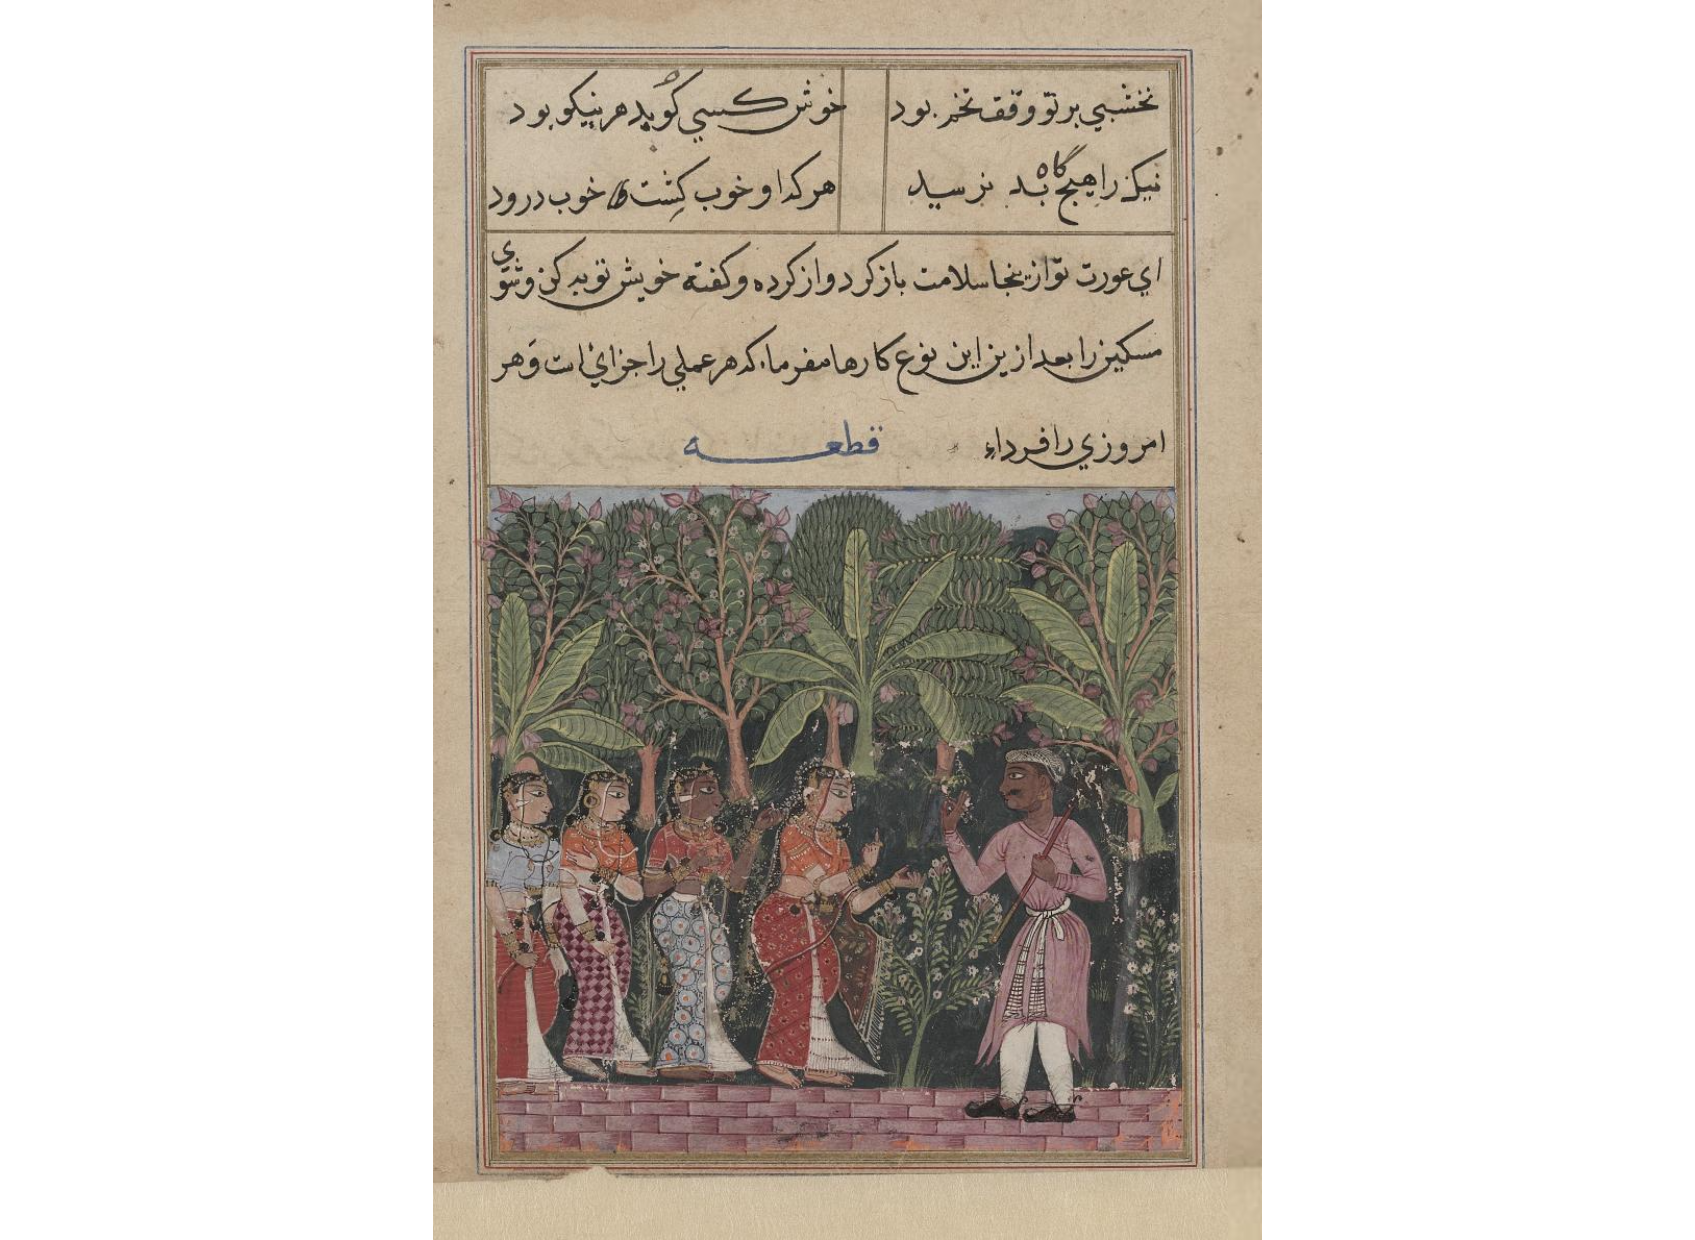 نخشبي بر تو وقف تخم بود خوش كسي كويد هر نيكو بود
نيك را هيچ گاه بد نرسيد هر كه او خوب كشت خوب درود
اي عورت تو ازينجا سلامت باز كرد و از كرده و كفته خويش توبه كن و شوي
مسكين را بعد ازين اين نوع كارها مفرماء كه هر عملي را جزائ است و هر
امروزي را فرداء قطعه